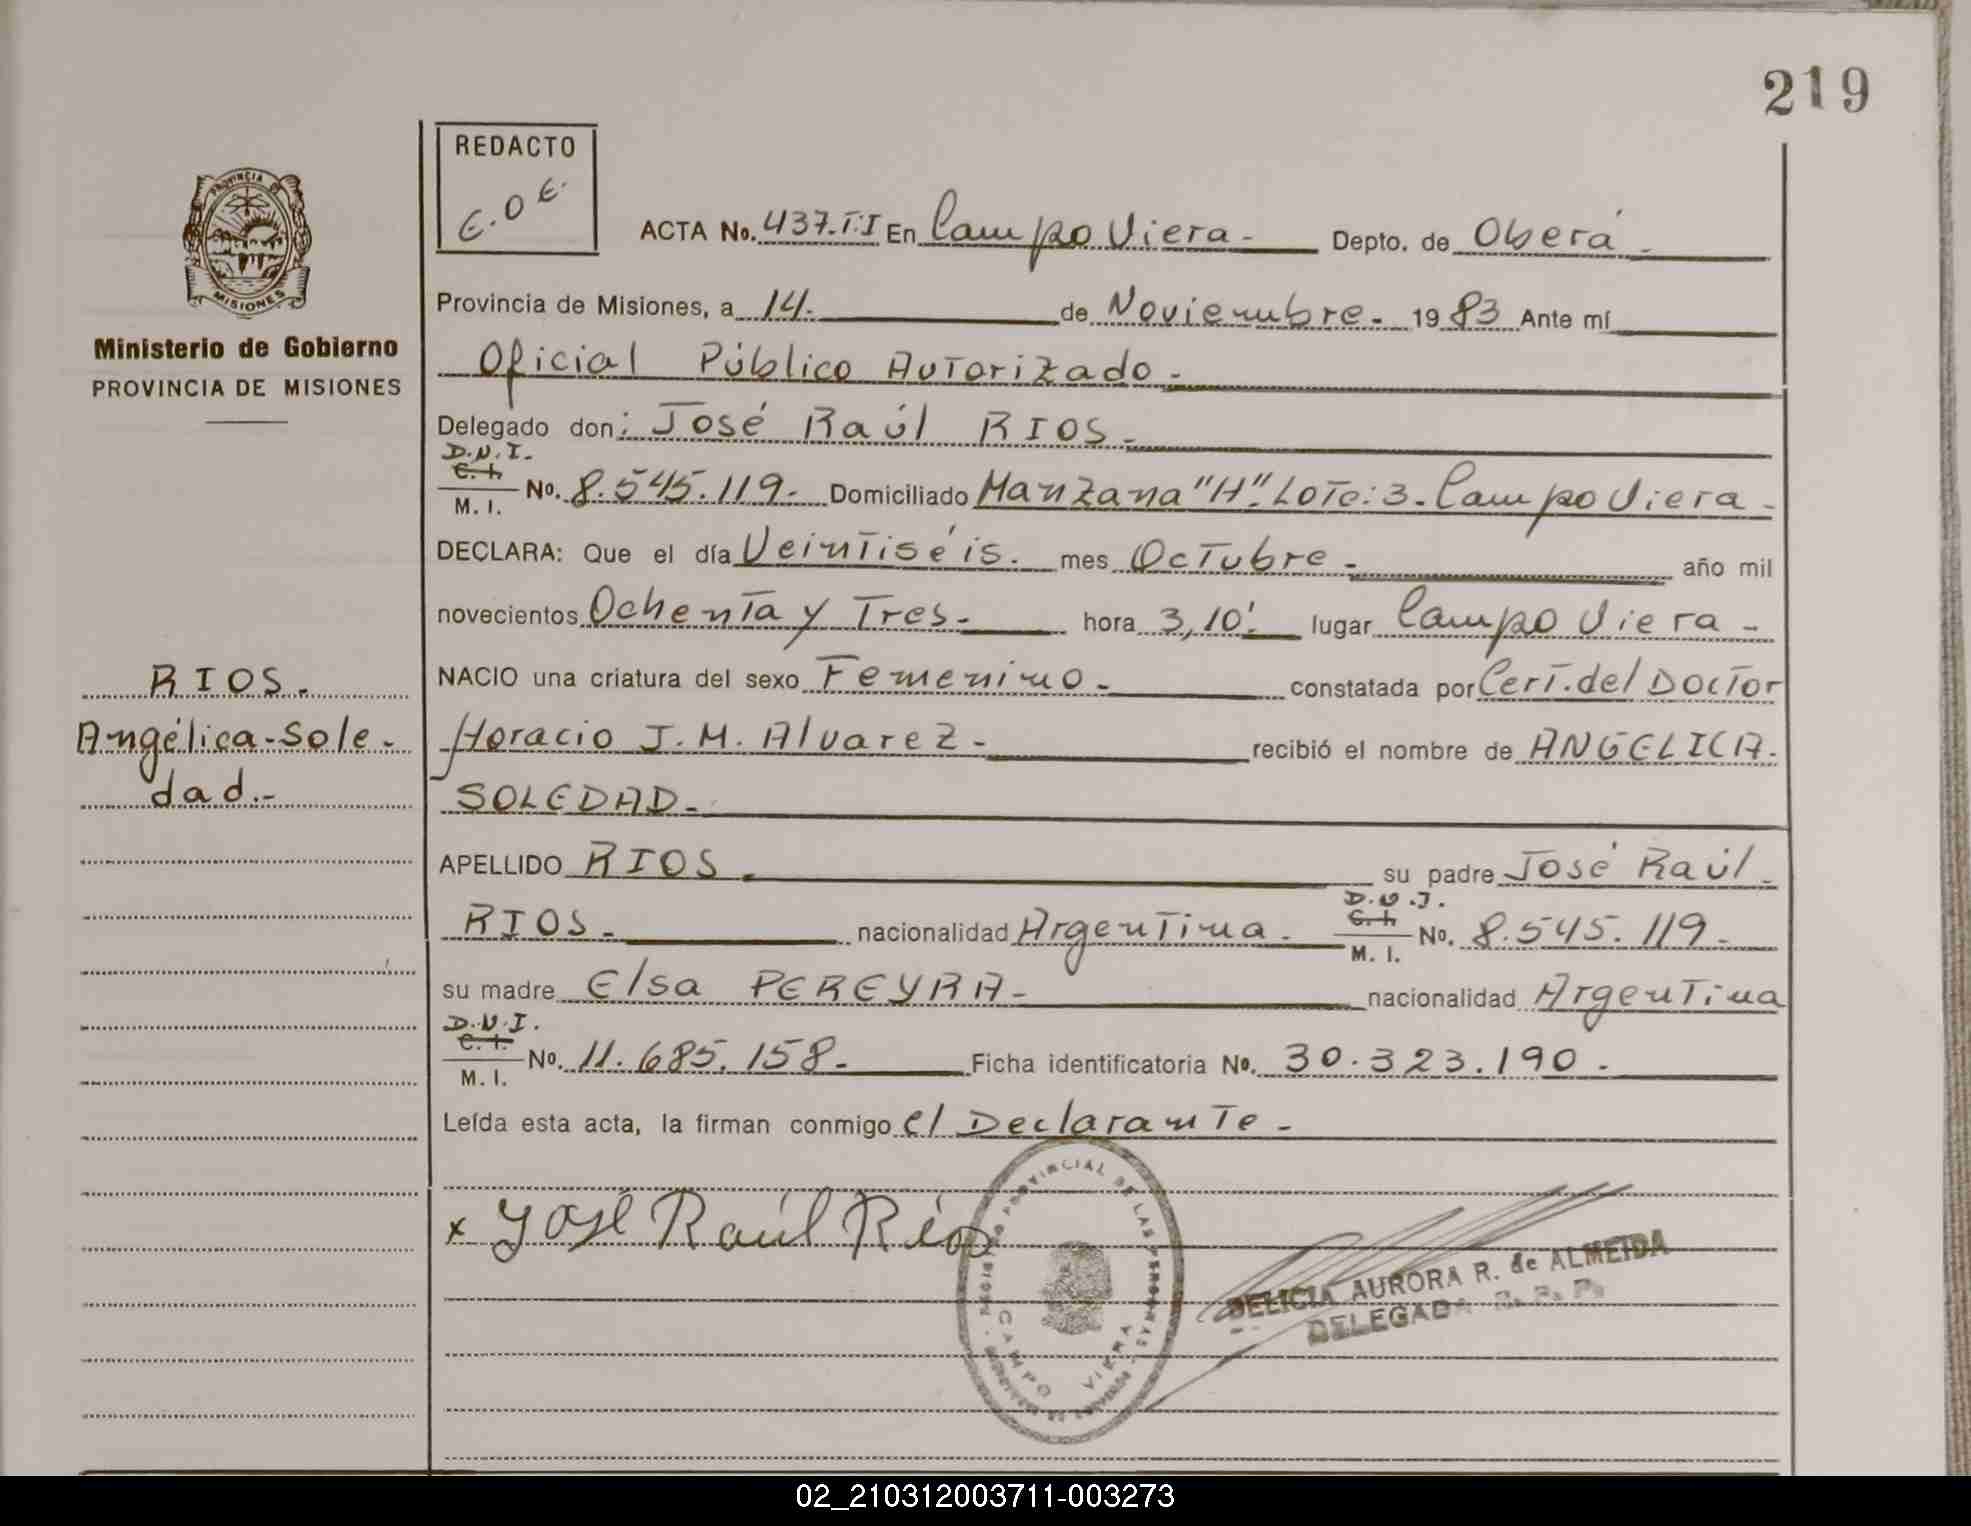 219
REDACTO
E.O.E.
PROVINCIA DE
MISIONES
Ministerio de Gobierno
PROVINCIA DE MISIONES
ACTA No. 437.T.I En Campo Viera.- Depto. de Oberá.-
Provincia de Misiones, a 14.- de Noviembre.- 1983 Ante mí
Oficial Público Autorizado.-
Delegado don: José Raúl RIOS.-
D.N.I.
C. I.
M. I. No. 8.545.119.- Domiciliado Manzana "H". Lote: 3.- Campo Viera.-
DECLARA: Que el día Veintiséis.- mes Octubre.- año mil
novecientos Ochenta y Tres.- hora 3,10'. lugar Campo Viera.-
NACIO una criatura del sexo Femenino.- constatada por Cert. del Doctor
Horacio J. M. Alvarez.- recibió el nombre de ANGELICA.
SOLEDAD.-
RIOS.
Angélica-Sole-
dad.-
APELLIDO RIOS. su padre José Raúl.
RIOS.- nacionalidad Argentina.- D.N.I.
C. I.
M. I. No. 8.545.119.-
su madre Elsa PEREYRA.- nacionalidad Argentina
D.N.I.
C. I.
M. I. No. 11.685.158.- Ficha identificatoria No. 30.323.190.-
Leída esta acta, la firman conmigo el Declarante.-
x José Raúl Rios
REGISTRO PROVINCIAL DE LAS PERSONAS
CAMPO VIERA
DELICIA AURORA R. de ALMEIDA
DELEGADA R. P. P.
02_210312003711-003273